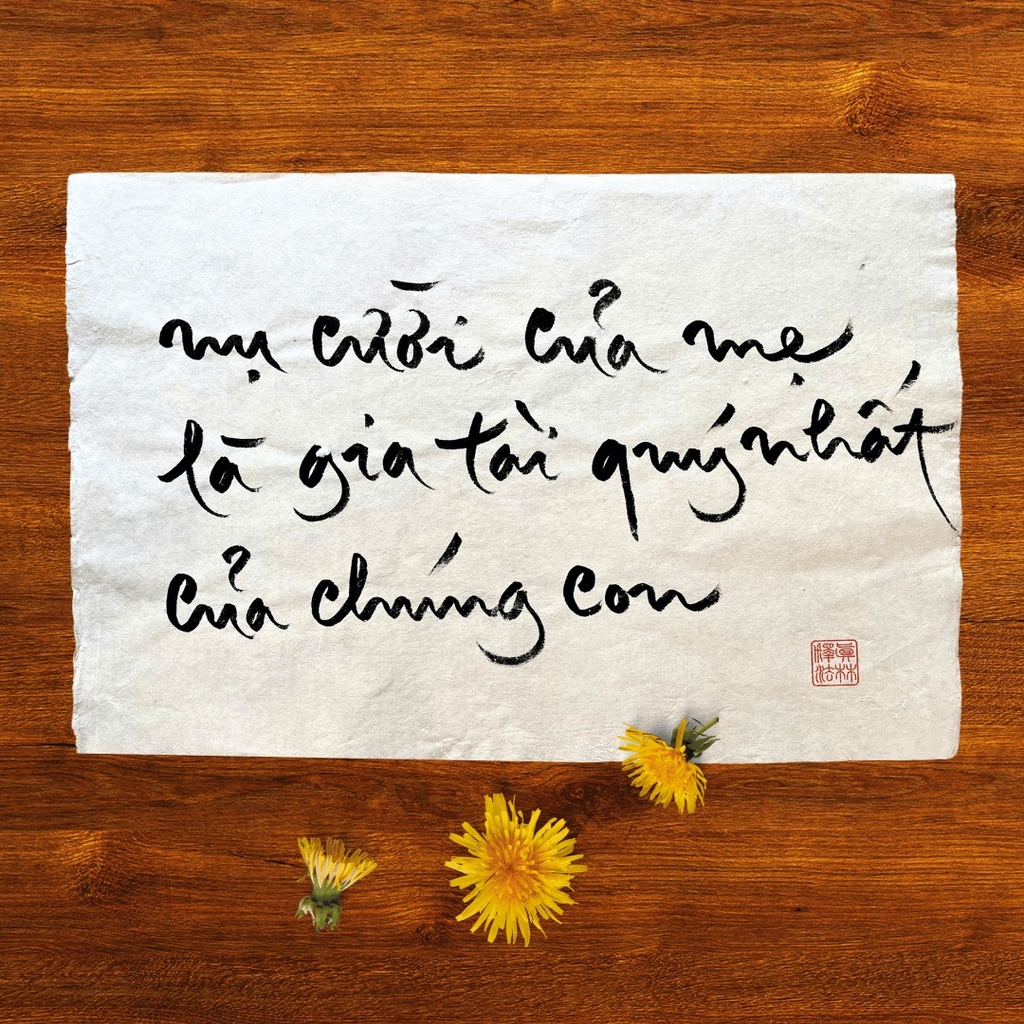 nụ cười của mẹ
là gia tài quý nhất
của chúng con
釋真
法林